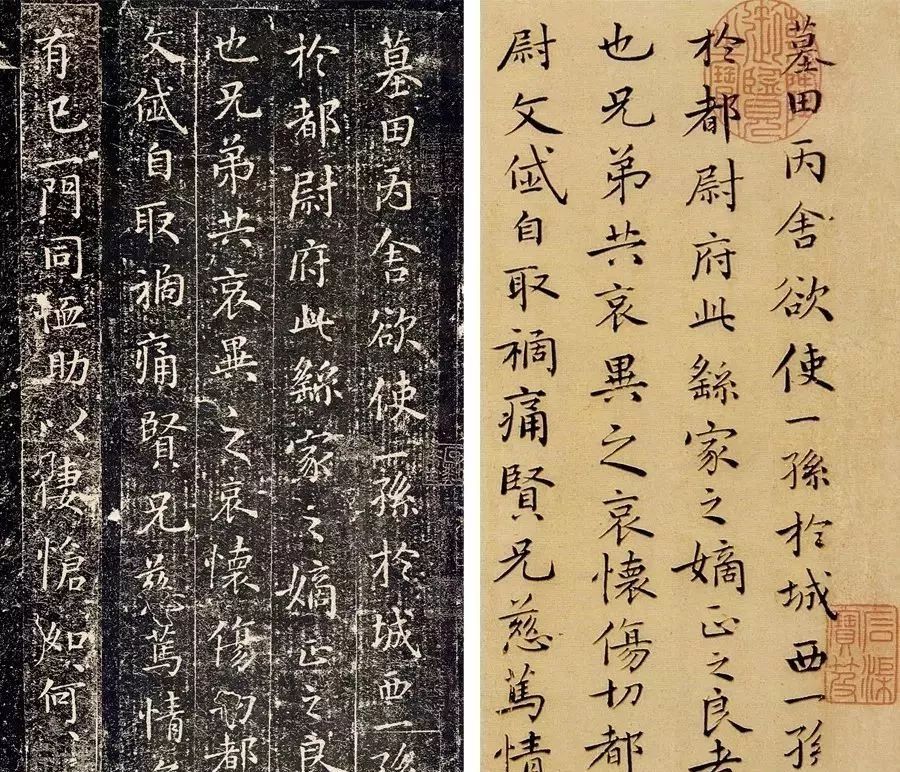 墓田丙舍欲使一孫於城西一孫
於都尉府此繇家之嫡正之良
也兄弟共哀異之哀懷傷切都
文岱自取禍痛賢兄慈篤情
有已一門同恤助以悽愴如何
墓田丙舍欲使一孫於城西一孫
於都尉府此繇家之嫡正之良者
也兄弟共哀異之哀懷傷切都
尉文岱自取禍痛賢兄慈篤情